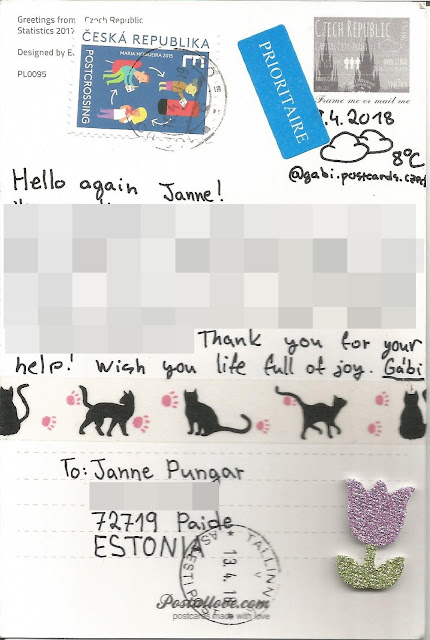 Greetings from Czech Republic
Statistics 2017
Designed by
PL0095
ČESKÁ REPUBLIKA
MARIA NOGUEIRA 2015
E
POSTCROSSING
PRIORITAIRE
CZECH REPUBLIC
CAPITAL CITY: PRAHA
Frame me or mail me
.4.2018
8°C
@gabi.postcards.czech
Hello again Janne!
Thank you for your
help! Wish you life full of joy. Gábi
To: Janne Pungar
72719 Paide
ESTONIA
TALLINN
13.4.18
EESTI POST
Postallove.com
postcards made with love